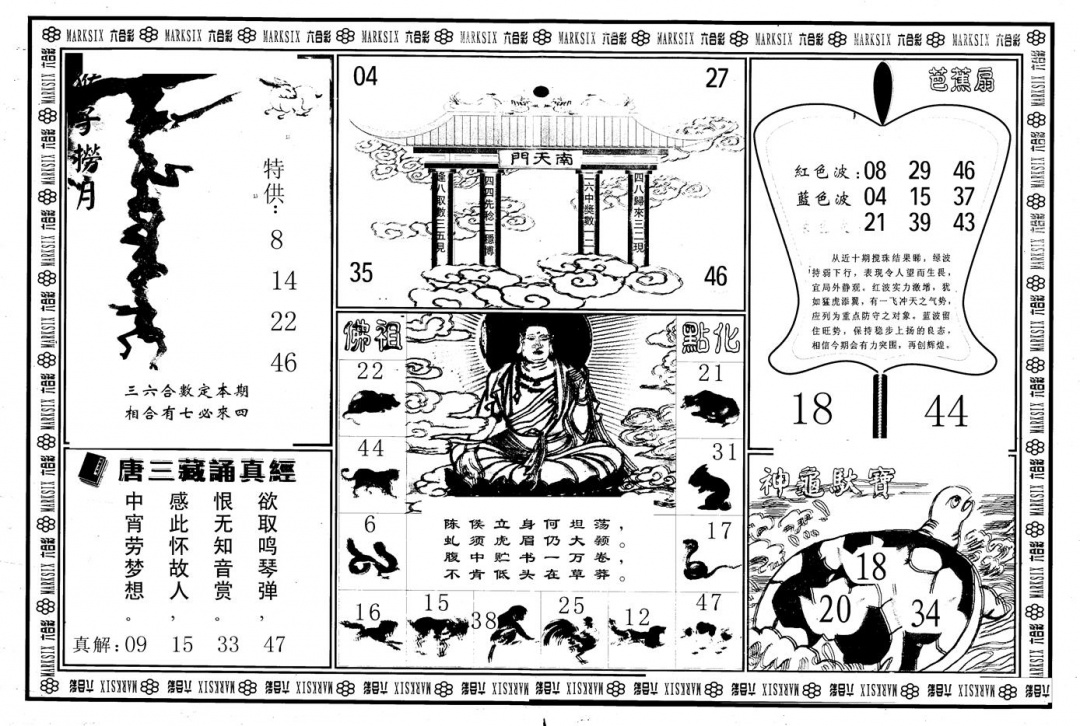 MARKSIX 六合彩 MARKSIX 六合彩 MARKSIX 六合彩 MARKSIX 六合彩 MARKSIX 六合彩 MARKSIX 六合彩 MARKSIX 六合彩 MARKSIX 六合彩 MARKSIX 六合彩 MARKSIX 六合彩
猴子撈月
特供：
8
14
22
46
三六合數定本期
相合有七必來四
唐三藏誦真經
欲取鸣琴弹，
恨无知音赏。
感此怀故人，
中宵劳梦想。
真解：09 15 33 47
04
27
南天門
逢八取數三五見
四四先稔一穩博
二六中獎數一二
四八歸來三二現
35
46
佛祖
點化
22
21
44
31
6
17
陈侯立身何坦荡，
虬须虎眉仍大颡。
腹中贮书一万卷，
不肯低头在草莽。
16
15
38
25
12
47
芭蕉扇
紅色波：08 29 46
藍色波 04 15 37
21 39 43
从近十期搅珠结果睇，绿波
持弱下行，表现令人望而生畏，
宜局外静观。红波实力激增，犹
如猛虎添翼，有一飞冲天之气势，
应列为重点防守之对象。蓝波留
住旺势，保持稳步上扬的良态，
相信今期会有力突围，再创辉煌。
18
44
神龜馱寶
18
20
34
MARKSIX 六合彩 MARKSIX 六合彩 MARKSIX 六合彩 MARKSIX 六合彩 MARKSIX 六合彩 MARKSIX 六合彩 MARKSIX 六合彩 MARKSIX 六合彩 MARKSIX 六合彩 MARKSIX 六合彩